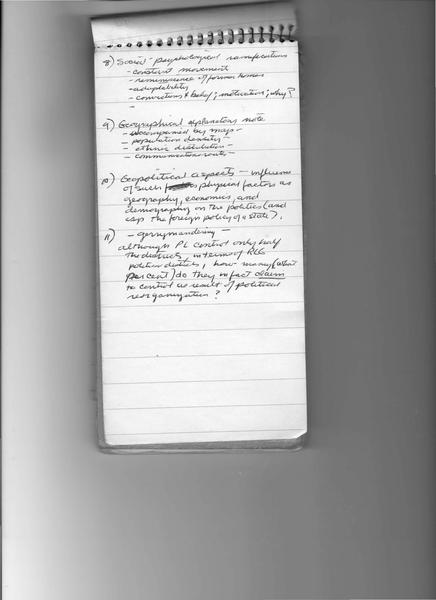 8) Social-psychological ramifications
- constant movement
- reminiscence of former homes
- adaptability
- convictions & belief; motivation; why?
-
9) Geographical explanatory note
- accompanied by maps -
- population density -
- ethnic distribution -
- communication routes
10) Geopolitical aspects - influence
of such physical factors as
geography, economics, and
demography on the politics (and
esp. the foreign policy of a state).
11) - gerrymandering -
although PL control only half
the districts, in terms of
districts, how many (what
per cent) do they in fact claim
to control as result of political
reorganization?